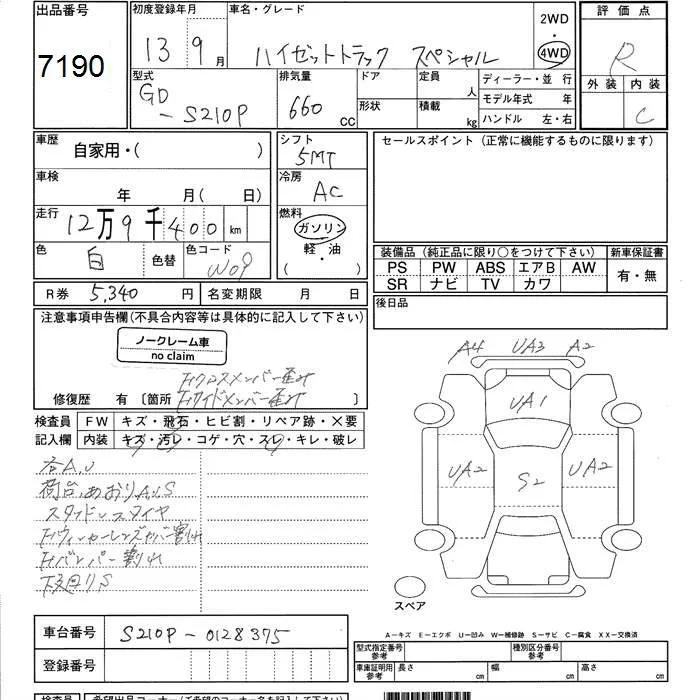 出品番号
7190
初度登録年月
13年 9月
車名・グレード
ハイゼットトラック スペシャル
2WD
・
4WD
評価点
R
外装 内装
C
型式
GD
-S210P
排気量
660 cc
ドア
形状
定員
人
積載
kg
ディーラー・並 行
モデル年式 年
ハンドル 左・右
車歴
自家用・( )
シフト
5MT
セールスポイント (正常に機能するものに限ります)
車検
年 月( 日)
冷房
AC
走行
12万9千400km
燃料
ガソリン
軽・油
( ・ )
色
白
色替
色コード
W09
装備品 (純正品に限り○をつけて下さい)
新車保証書
PS PW ABS エアB AW
SR ナビ TV カワ
有・無
R券 5,340 円
名変期限 月 日
後日品
注意事項申告欄(不具合内容等は具体的に記入して下さい)
ノークレーム車
no claim
修復歴 有 〔箇所 〕
Frクロスメンバー歪み
Frサイドメンバー歪み
検査員
記入欄
FW キズ・飛石・ヒビ割・リペア跡・×要
内装 キズ・汚レ・コゲ・穴・スレ・キレ・破レ
各A,U
荷台,あおりA,U,S
スタッドレスタイヤ
Frウィンカーレンズカバー割れ
Frバンパー割れ
下廻りS
A4 UA3 A2
UA1
UA2 S2 UA2
スペア
A-キズ E-エクボ U-凹み W-補修跡 S-サビ C-腐食 XX-交換済
車台番号
S210P-0128375
登録番号
型式指定番号
参考
種別区分番号
参考
車庫証明用
参考
長さ cm
幅 cm
高さ cm
検査員
希望出品コーナー(ご希望のコーナー名をご記入下さい)